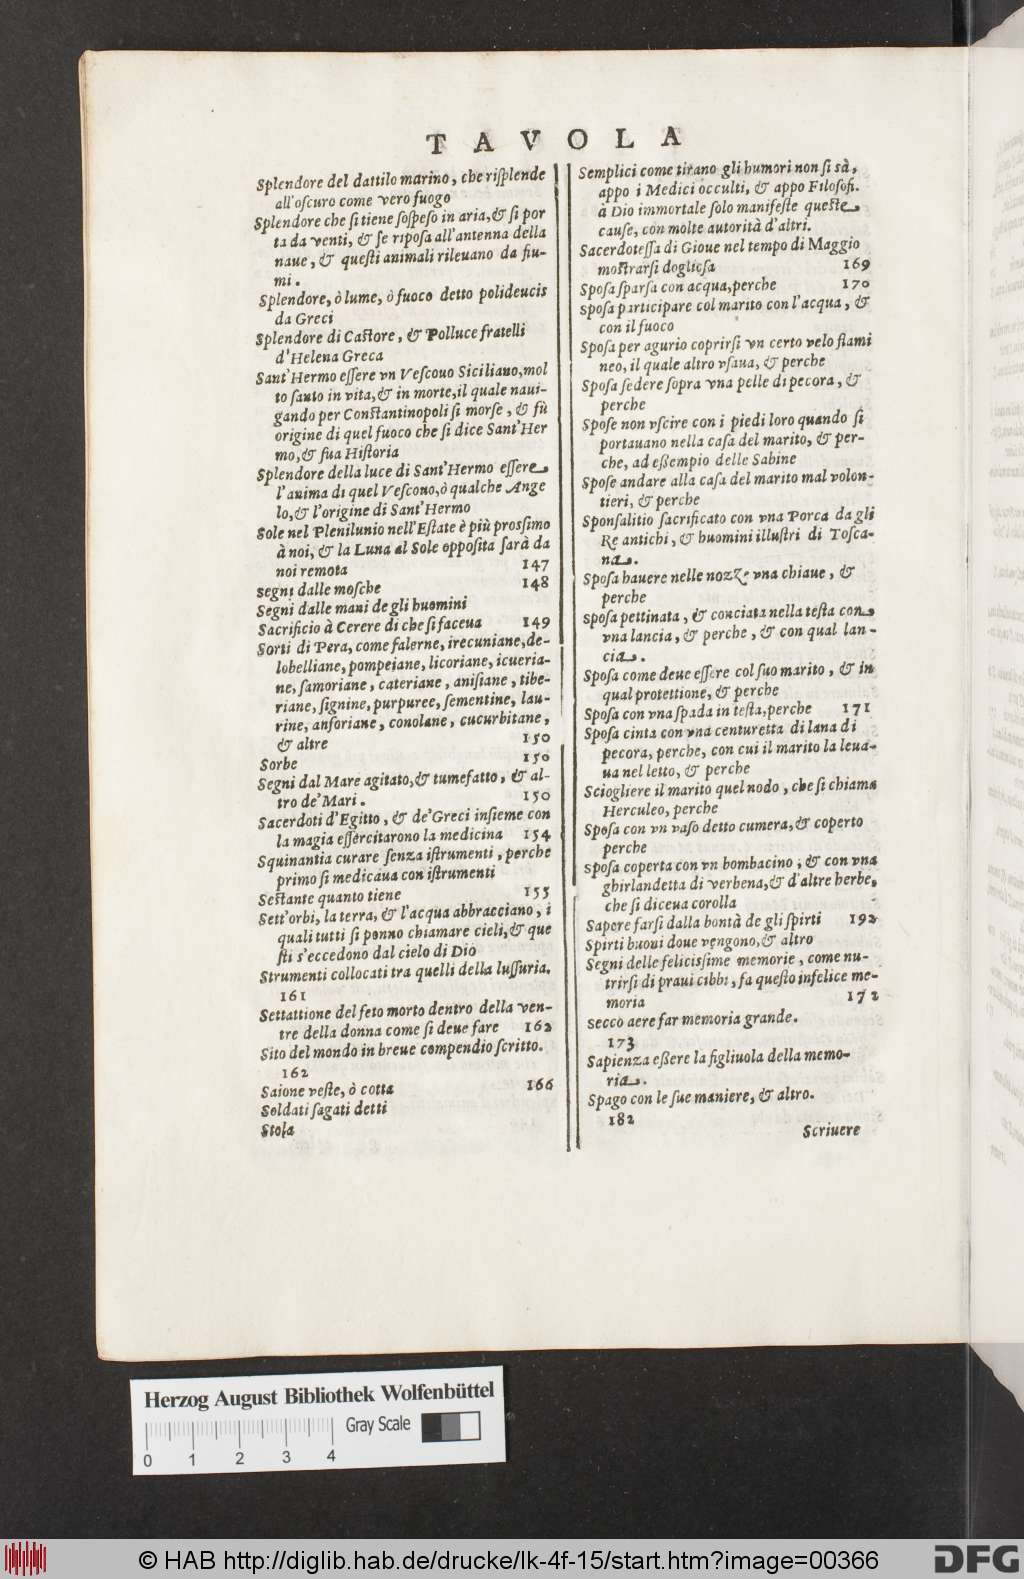 TAVOLA
Splendore del dattilo marino, che riſplende
all'oſcuro come vero fuogo
Splendore che ſi tiene ſoſpeſo in aria,& ſi por
ta da venti, & ſe ripoſa all'antenna della
naue, & queſti animali rileuano da fiu-
mi.
Splendore, ò lume, ò fuoco detto polideucis
da Greci
Splendore di Caſtore, & Polluce fratelli
d'Helena Greca
Sant'Hermo eſſere vn Veſcouo Siciliano,mol
to ſanto in vita,& in morte,il quale naui-
gando per Conſtantinopoli ſi morſe, & fù
origine di quel fuoco che ſi dice Sant'Her
mo,& ſua Hiſtoria
Splendore della luce di Sant'Hermo eſſere
l'anima di quel Veſcouo,ò qualche Ange
lo,& l'origine di Sant'Hermo
Sole nel Plenilunio nell'Eſtate è più proſſimo
à noi, & la Luna al Sole oppoſita ſarà da
noi remota 147
Segni dalle moſche 148
Segni dalle mani de gli huomini
Sacrificio à Cerere di che ſi faceua 149
Sorti di Pera, come falerne, irecuniane,de-
lobelliane, pompeiane, licoriane, icueria-
ne, ſamoriane, cateriane, aniſiane, tibe-
riane, ſignine, purpuree, ſementine, lau-
rine, anforiane, conolane, cucurbitane,
& altre 150
Sorbe 150
Segni dal Mare agitato,& tumefatto, & al-
tro de'Mari. 150
Sacerdoti d'Egitto, & de'Greci inſieme con
la magia eſſercitarono la medicina 154
Squinantia curare ſenza iſtrumenti, perche
primo ſi medicaua con iſtrumenti
Seſtante quanto tiene 155
Sett'orbi, la terra, & l'acqua abbracciano, i
quali tutti ſi ponno chiamare cieli,& que
ſti s'eccedono dal cielo di Dio
Strumenti collocati tra quelli della luſſuria.
161
Settattione del feto morto dentro della ven-
tre della donna come ſi deue fare 162
Sito del mondo in breue compendio ſcritto.
162
Saione veſte, ò cotta 166
Soldati ſagati detti
Stola
Semplici come tirano gli humori non ſi sà,
appo i Medici occulti, & appo Filoſofi.
à Dio immortale ſolo manifeſte queſte
cauſe, con molte autorità d'altri.
Sacerdoteſſa di Gioue nel tempo di Maggio
moſtrarſi doglioſa 169
Spoſa ſparſa con acqua,perche 170
Spoſa participare col marito con l'acqua, &
con il fuoco
Spoſa per agurio coprirſi vn certo velo fiami
neo, il quale altro vſaua, & perche
Spoſa ſedere ſopra vna pelle di pecora, &
perche
Spoſe non vſcire con i piedi loro quando ſi
portauano nella caſa del marito, & per-
che, ad eſſempio delle Sabine
Spoſe andare alla caſa del marito mal volon-
tieri, & perche
Sponſalitio ſacrificato con vna Porca da gli
Re antichi, & huomini illuſtri di Toſca-
na.
Spoſa hauere nelle nozze vna chiaue, &
perche
Spoſa pettinata, & conciata nella teſta con
vna lancia, & perche, & con qual lan-
cia.
Spoſa come deue eſſere col ſuo marito, & in
qual protettione, & perche
Spoſa con vna ſpada in teſta,perche 171
Spoſa cinta con vna centuretta di lana di
pecora, perche, con cui il marito la leua-
ua nel letto, & perche
Sciogliere il marito quel nodo, che ſi chiama
Herculeo, perche
Spoſa con vn vaſo detto cumera,& coperto
perche
Spoſa coperta con vn bombacino, & con vna
ghirlandetta di verbena,& d'altre herbe,
che ſi diceua corolla
Sapere farſi dalla bontà de gli ſpirti 192
Spirti buoni doue vengono,& altro
Segni delle feliciſſime memorie, come nu-
trirſi di praui cibbi, fa queſto infelice me-
moria 172
Secco aere far memoria grande.
173
Sapienza eſſere la figliuola della memo-
ria.
Spago con le ſue maniere, & altro.
182
Scriuere
Herzog August Bibliothek Wolfenbüttel
Gray Scale
0 1 2 3 4
© HAB http://diglib.hab.de/drucke/lk-4f-15/start.htm?image=00366
DFG